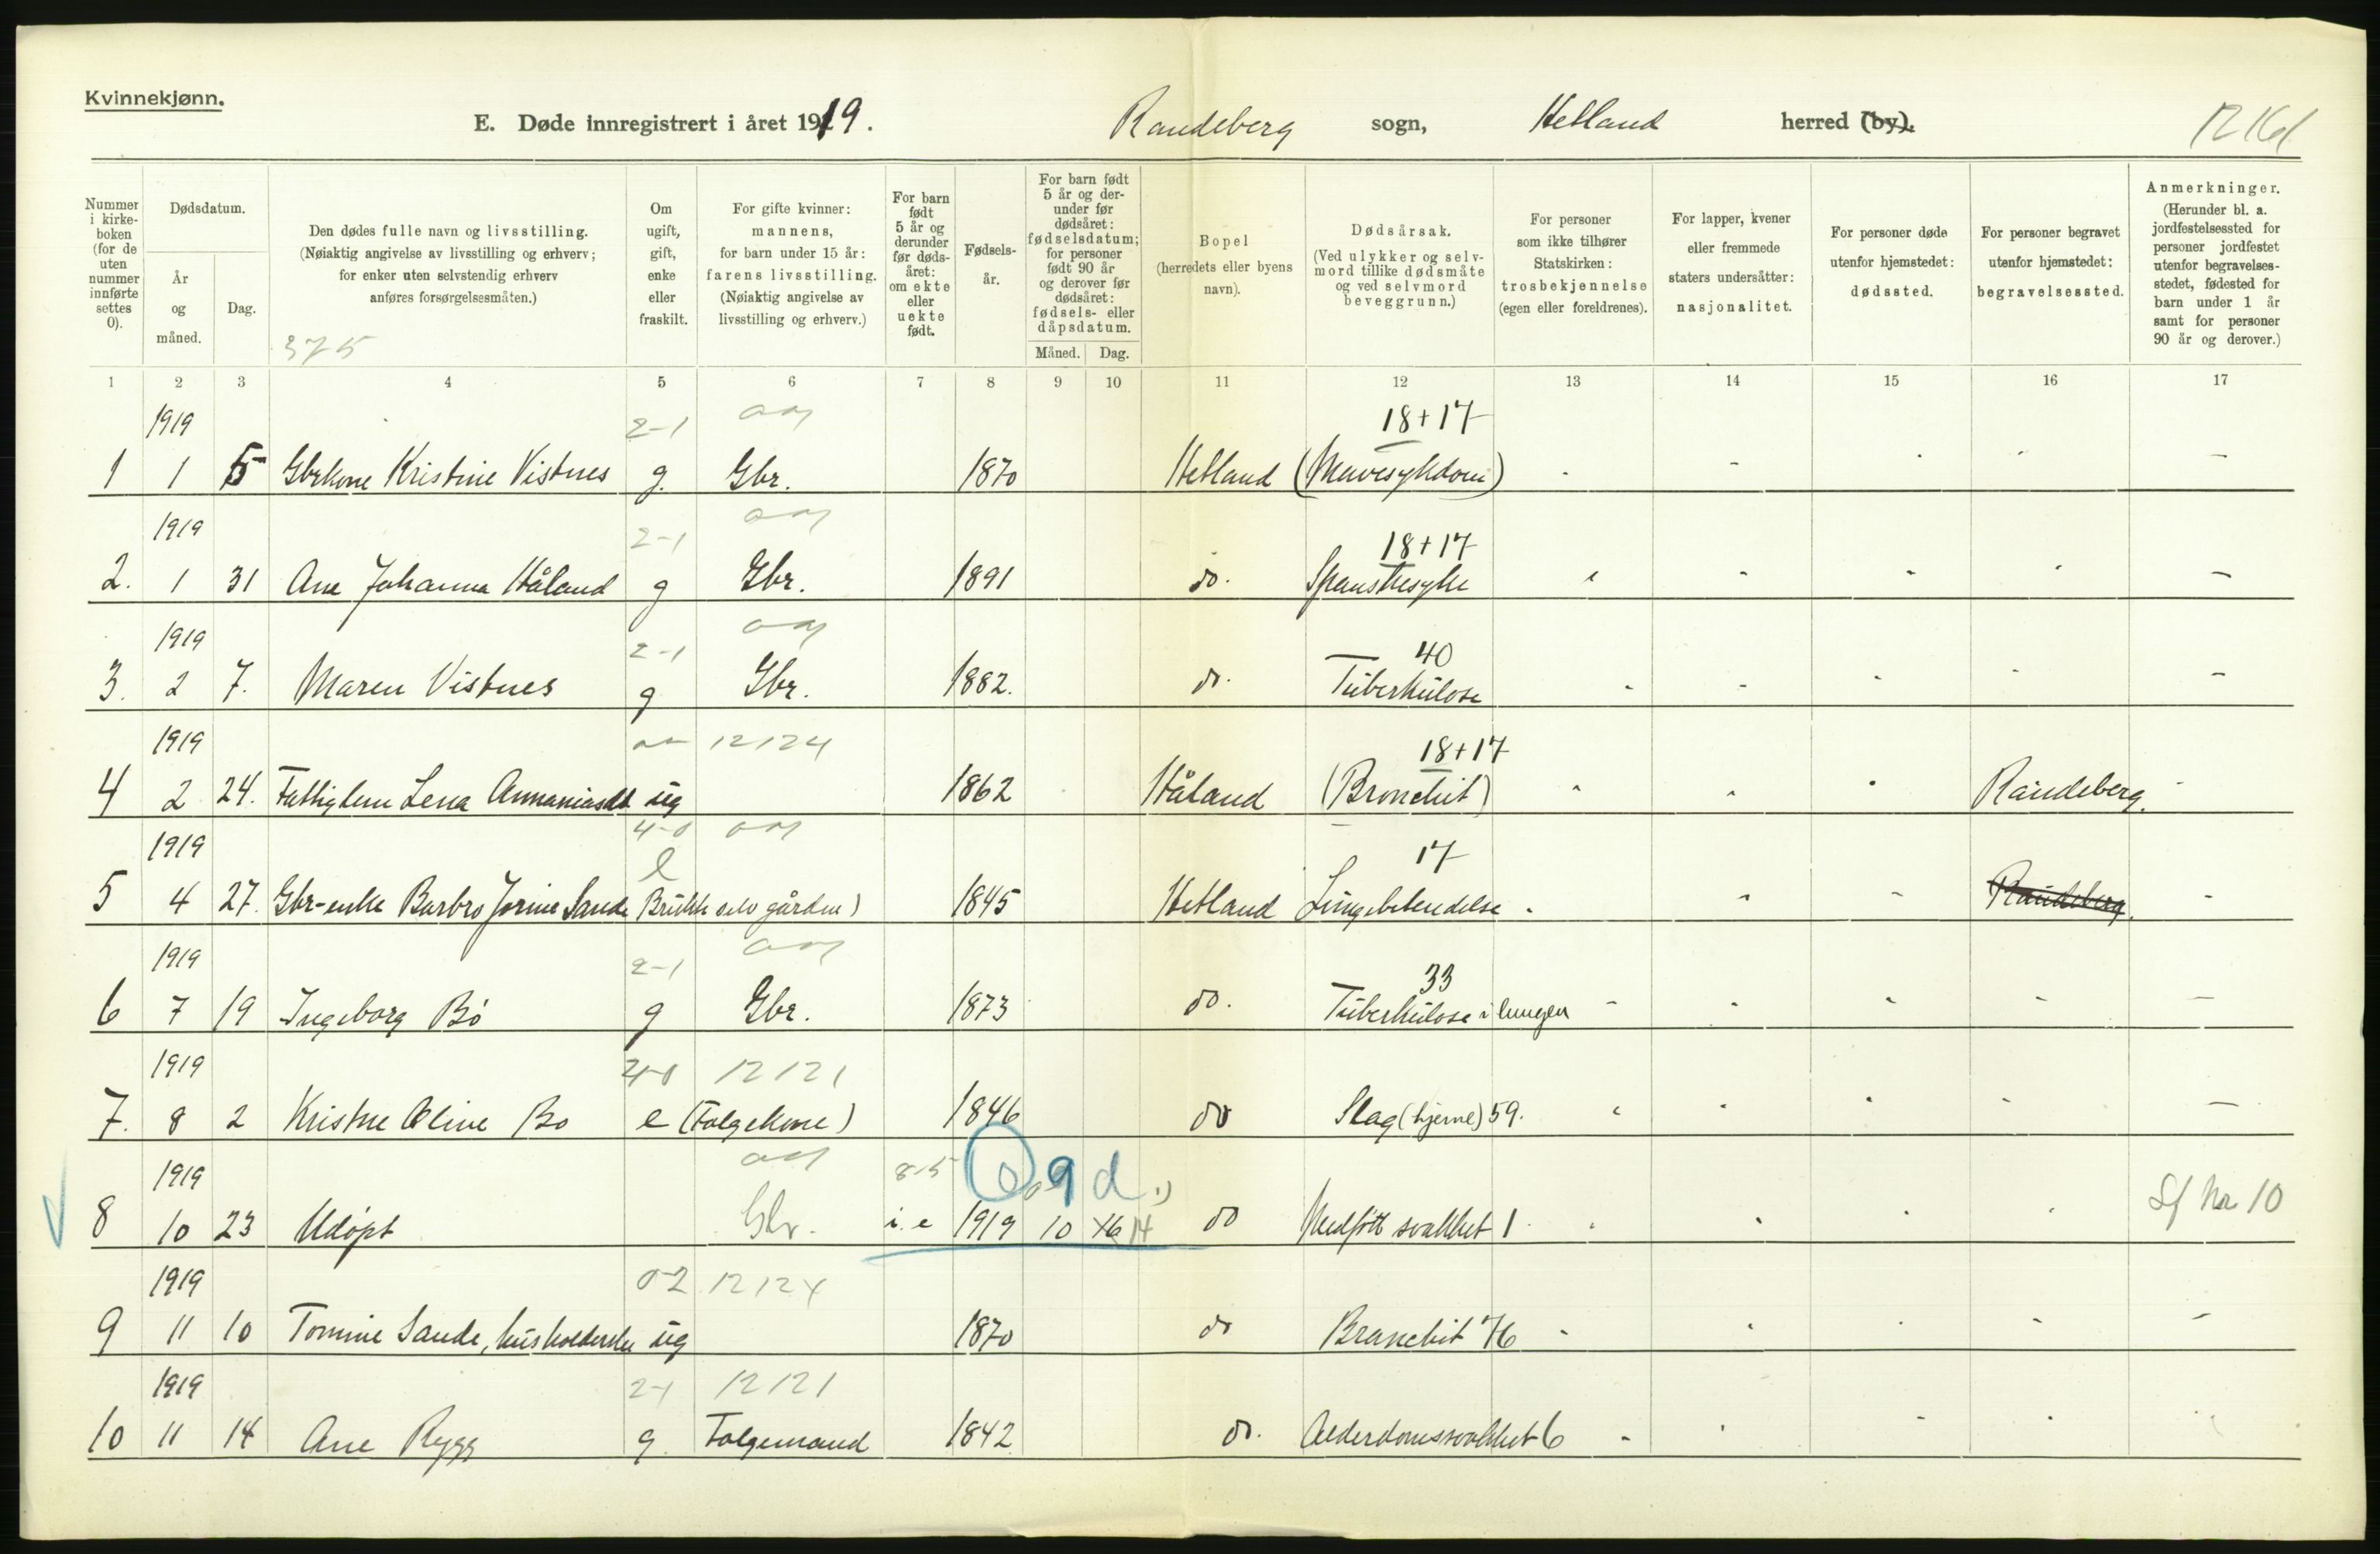 Kvinnekjønn.
E. Døde innregistrert i året 1919. Randeberg sogn, Hetland herred (by).
Nummer i kirkeboken (for de uten nummer innførte settes 0).
Dødsdatum.
År og måned.
Dag.
Den dødes fulle navn og livsstilling.
(Nøiaktig angivelse av livsstilling og erhverv;
for enker uten selvstendig erhverv
anføres forsørgelsesmåten.)
375
Om ugift, gift, enke eller fraskilt.
For gifte kvinner:
mannens,
for barn under 15 år:
farens livsstilling.
(Nøiaktig angivelse av
livsstilling og erhverv.)
For barn født 5 år og derunder før dødsåret: om ekte eller uekte født.
Fødselsår.
For barn født 5 år og derunder før dødsåret: fødselsdatum; for personer født 90 år og derover før dødsåret: fødsels- eller dåpsdatum.
Måned. Dag.
Bopel
(herredets eller byens
navn).
Dødsårsak.
(Ved ulykker og selvmord tillike dødsmåte og ved selvmord beveggrunn.)
For personer
som ikke tilhører
Statskirken:
trosbekjennelse
(egen eller foreldrenes).
For lapper, kvener
eller fremmede
staters undersåtter:
nasjonalitet.
For personer døde
utenfor hjemstedet:
dødssted.
For personer begravet
utenfor hjemstedet:
begravelsessted.
Anmerkninger.
(Herunder bl. a. jordfestelsessted for personer jordfestet utenfor begravelsesstedet, fødested for barn under 1 år samt for personer 90 år og derover.)
1 2 3 4 5 6 7 8 9 10 11 12 13 14 15 16 17
1919 2-1 18+17
1 1 5 Gbrkone Kristine Vistnes g. Gbr. 1870 Hetland (Mavesykdom) - - - - -
1919 2-1 18+17
2. 1 31 Ane Johanna Håland g Gbr. 1891 do. Spanskesyke - - - - -
1919 2-1 40
3. 2 7. Maren Vistnes g Gbr. 1882. do. Tuberkulose - - - - -
1919 12124 18+17
4 2 24. Fattiglem Lena Annaniasdt ug 1862 Håland (Bronchit) - - - Randeberg. -
1919 4-0 17
5 4 27. Gbr-enke Barbro Jorine Sande e Brukte selv gården) 1845 Hetland Lungebetendelse - - - Randeberg. -
1919 2-1 33
6 7 19 Ingeborg Bö g Gbr. 1873 do. Tuberkulose i lungen - - - - -
1919 4-0 12121
7. 8 2 Kristne Oline Bo e (Folgekone) 1846 do Slag (hjerne) 59. - - - - -
1919 8-5 0 9 d 1)
8 10 23 Udöpt Gbr. i. e 1919 10 16 14 do Medfött svakhet 1 - - - - Sf No 10
1919 0-2 12124
9 11 10 Tomine Sande, husholderske ug 1870 do Bronchit 76 - - - - -
1919 2-1 12121
10 11 14 Ane Rygg g. Folgemand 1842 do. Alderdomssvakhet 6 - - - -